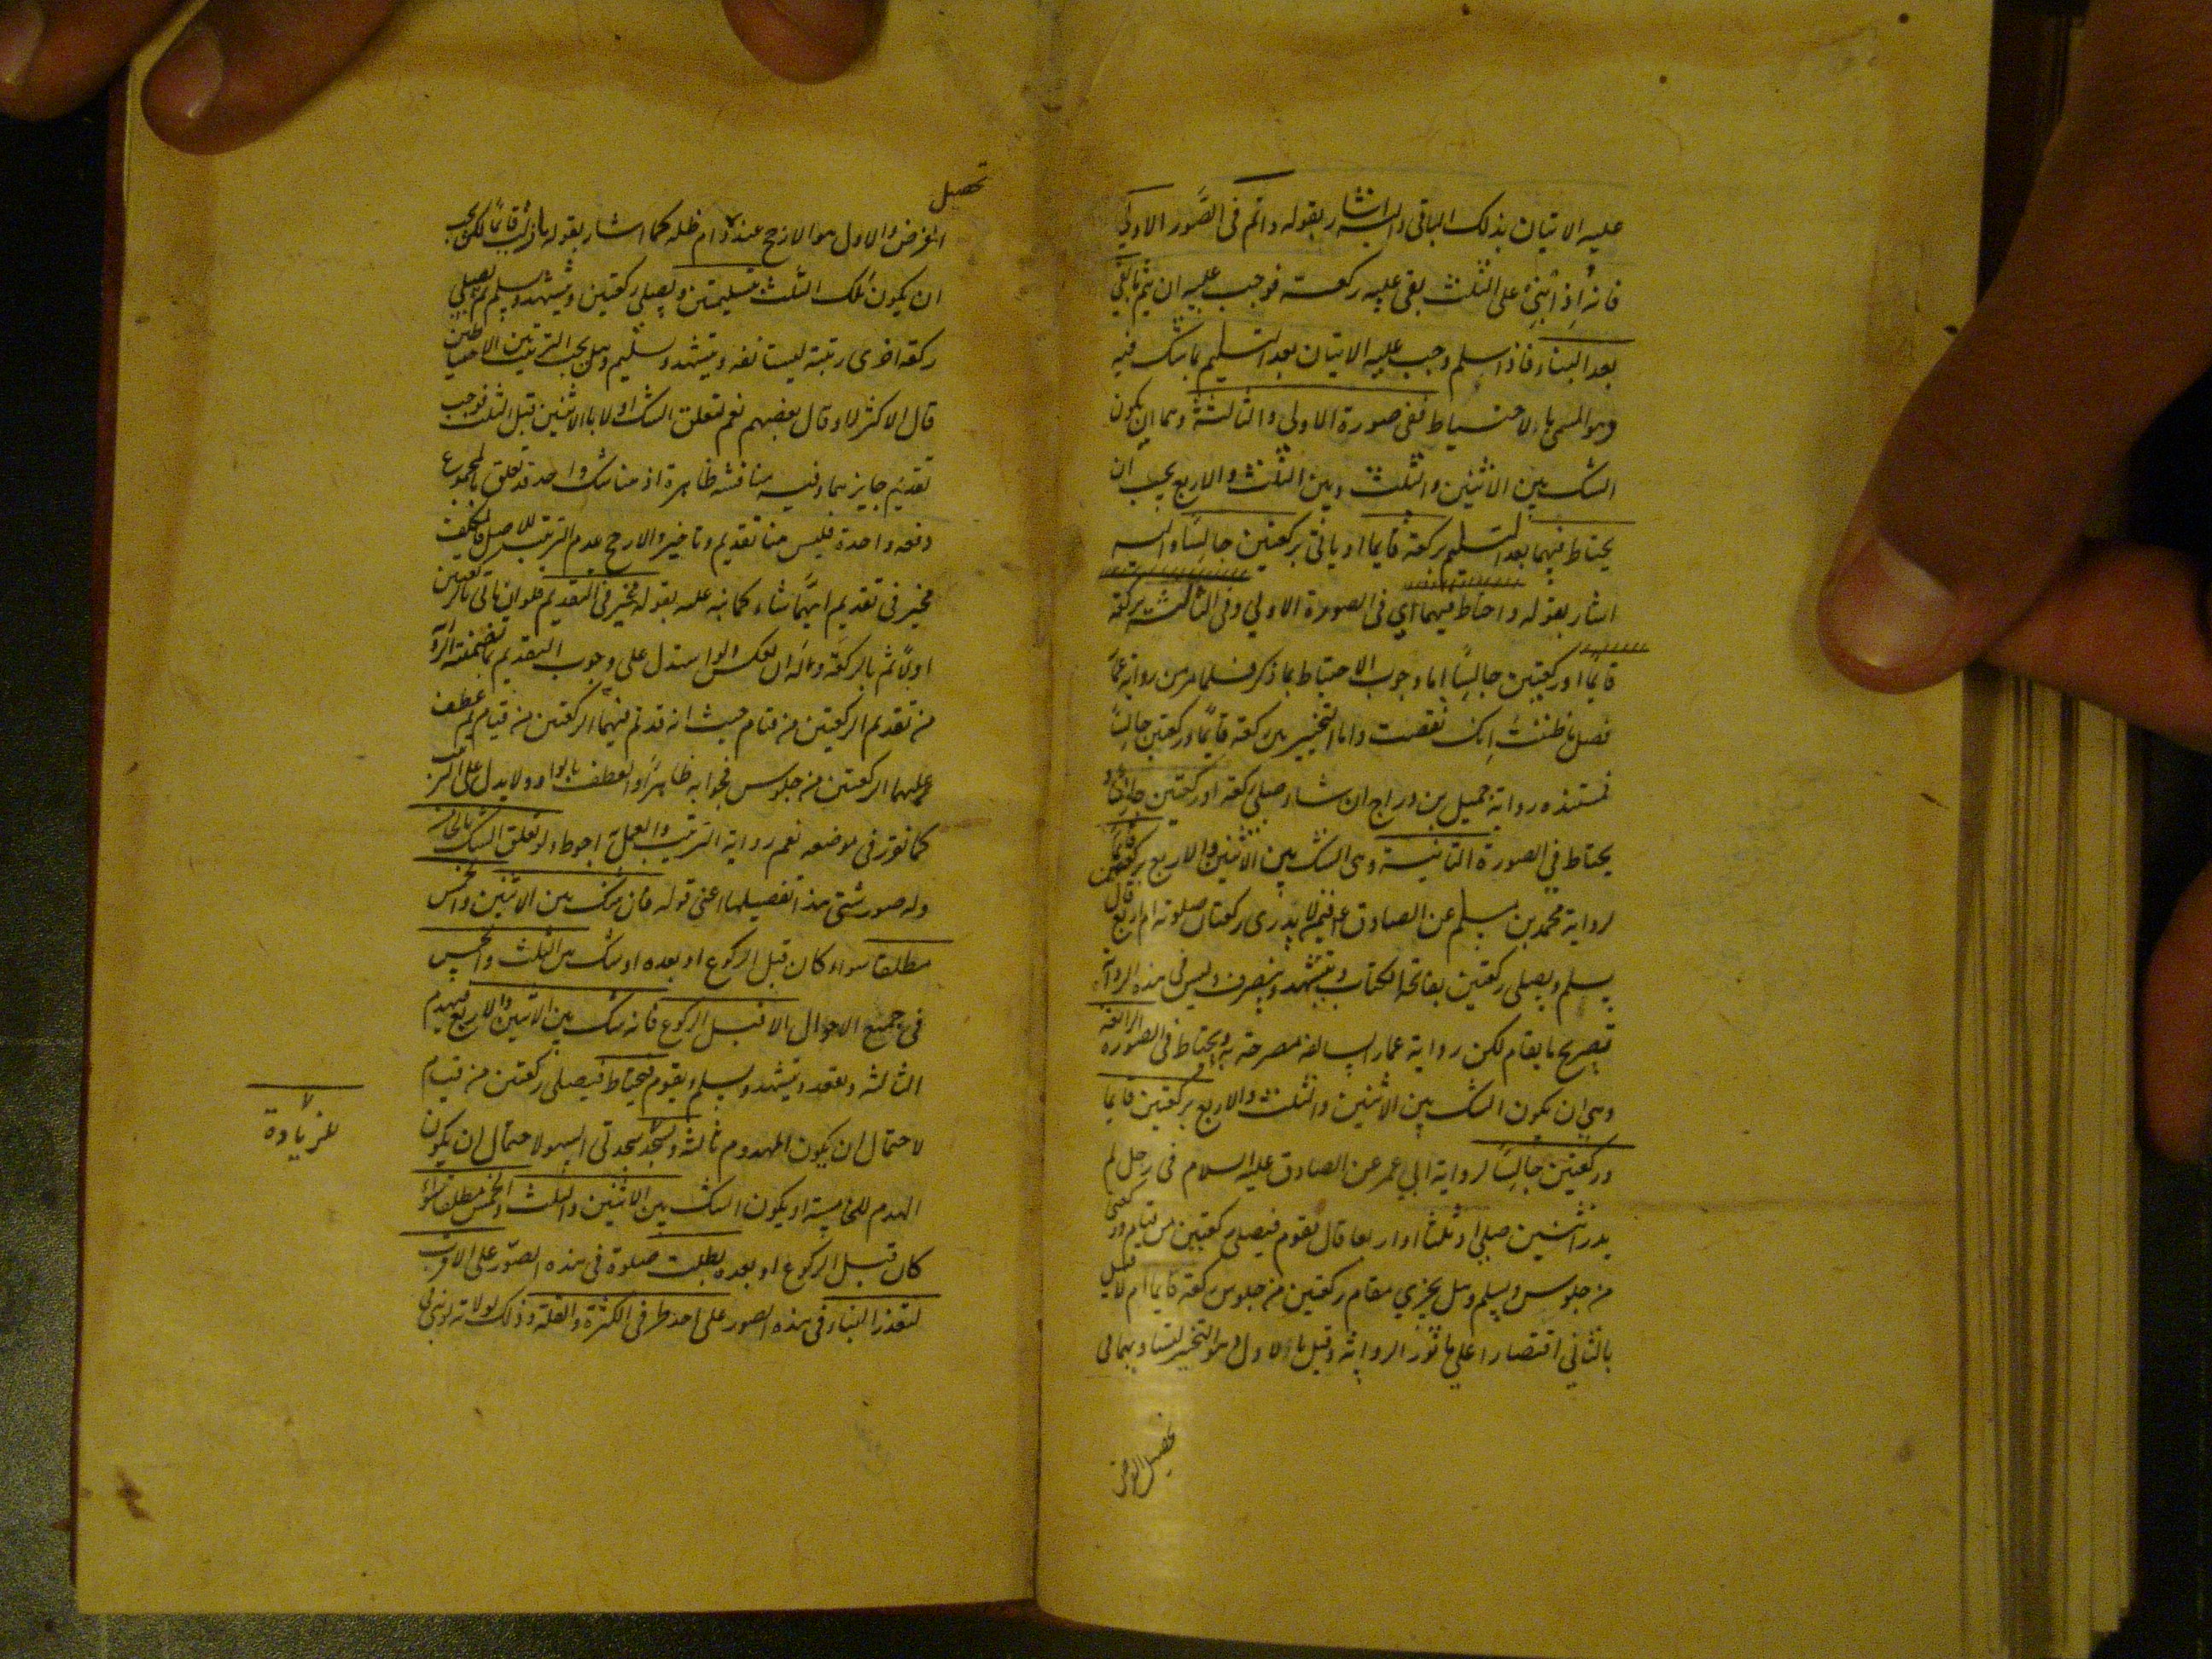 عليه الاتيان بذلك الباقى واليه اشار بقوله واتم فى الصور الاولى
فانه اذا بنى على الثلث بقى عليه ركعة فوجب عليه ان يتم ما بقى
بعد البناء فاذا سلم وجب عليه الاتيان بعد التسليم بما شك فيه
وهو المسمى بالاحتياط ففى صورة الاولى والثالثة وهما ان يكون
الشك بين الاثنين والثلث وبين الثلث والاربع يجب ان
يحتاط فيهما بعد التسليم بركعة قايما او ياتى بركعتين جالسا واليه
اشار بقوله واحتاط فيهما اي فى الصورة الاولى وفى الثالثة بركعة
قايما او ركعتين جالسا اما وجوب الاحتياط بما ذكر فلما مر من رواية عمار
فصل ما ظننت انك نقصت واما التخيير بين ركعة قايما وركعتين جالسا
فمستنده رواية جميل بن دراج ان شاء صلى ركعة او ركعتين جالسا و
يحتاط في الصورة الثانية وهى الشك بين الاثنين والاربع بركعتين قايما
لرواية محمد بن مسلم عن الصادق ع فيمن لا يدرى ركعتان صلوته ام اربع قال
يسلم ويصلى ركعتين بفاتحة الكتاب ويتشهد وينصرف وليس فى هذه الرواية
تصريح بالقيام لكن رواية عمار السالفة مصرحة به ويحتاط فى الصورة الرابعة
وهي ان يكون الشك بين الاثنين والثلث والاربع بركعتين قايما
وركعتين جالسا لرواية ابي عمر عن الصادق عليه السلام فى رجل لم
يدر اثنتين صلى او ثلثا او اربعا قال يقوم فيصلى ركعتين من قيام وركعتين
من جلوس ويسلم وهل يجزي مقام ركعتين من جلوس ركعة قايما ام لا قيل
بالثاني اقتصارا على ماثور الرواية وقيل بالاول وهو التخيير لتساويهما فى
تحصيل الغرض
تحصيل
الغرض والاول هو الارجح عند دام ظله كما اشار بقوله قايما لكن يجب
ان يكون تلك الثلث بتسليمتين ويصلى ركعتين ويتشهد ويسلم ثم يصلى
ركعة اخرى رتبة ليستانفه ويتشهد ويسلم وهل يجب الترتيب بين الاحتياطين
قال الاكثر لا وقال بعضهم نعم لتعلق الشك اولا بالاثنين قبل الثلث فوجب
تقديم جابزيهما وفيه مناقشة ظاهرة اذ هنا شك واحد قد تعلق بالمجموع
دفعة واحدة فليس هنا تقديم وتاخير والارجح عدم الترتيب للاصل فالمكلف
مخير فى تقديم ايهما شاء كما نبه عليه بقوله مخير فى التقديم فلو ان ياتى بالركعتين
اولا ثم بالركعة وله ان يعكس استدل على وجوب التقديم بما تضمنته الرواية
من تقديم الركعتين من قيام حيث انه قد تم فيهما الركعتين من قيام ثم عطف
عليهما الركعتين من جلوس فجوابه ظاهر اذ العطف بالواو ولا يدل على الترتيب
كما تقرر فى موضعه نعم رواية الترتيب والعمل به احوط ولو تعلق الشك بالخامسة
وله صور شتى هذا تفصيلها اعنى قوله فان شك بين الاثنين والخمس
مطلقا سواء كان قبل الركوع او بعده او شك بين الثلث والخمس
فى جميع الاحوال الا قبل الركوع فانه شك بين الاثنين والاربع فيهدم
الثالثة ويقعد ويتشهد ويسلم ويقوم فيحتاط فيصلى ركعتين من قيام
لاحتمال ان يكون المهدوم ثالثة ويسجد سجدتى السهو لاحتمال ان يكون
الهدم للخامسة او يكون الشك بين الاثنين والثلث والخمس مطلقا سواء
كان قبل الركوع او بعده بطلت صلوة فى هذه الصور على الاقرب
لتعذر البناء فى هذه الصور على احد طرفى الكثرة والقلة وذلك لولانه لو بنى
للزيادة